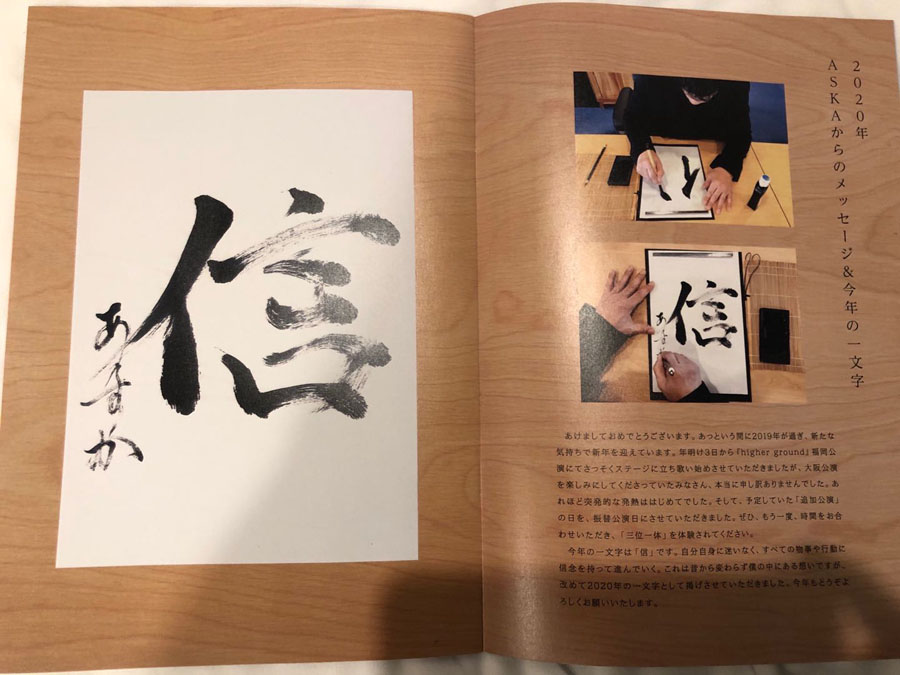 信
あすか
2020年
ASKAからのメッセージ&今年の一文字
信
あけましておめでとうございます。あっという間に2019年が過ぎ、新たな
気持ちで新年を迎えています。年明け3日から『higher ground』福岡公
演にてさっそくステージに立ち歌い始めさせていただきましたが、大阪公演
を楽しみにしてくださっていたみなさん、本当に申し訳ありませんでした。あ
れほど突発的な発熱ははじめてでした。そして、予定していた「追加公演」
の日を、振替公演日にさせていただきました。ぜひ、もう一度、時間をお合
わせいただき、「三位一体」を体験されてください。
今年の一文字は「信」です。自分自身に迷いなく、すべての物事や行動に
信念を持って進んでいく。これは昔から変わらず僕の中にある想いですが、
改めて2020年の一文字として掲げさせていただきました。今年もどうぞよ
ろしくお願いいたします。